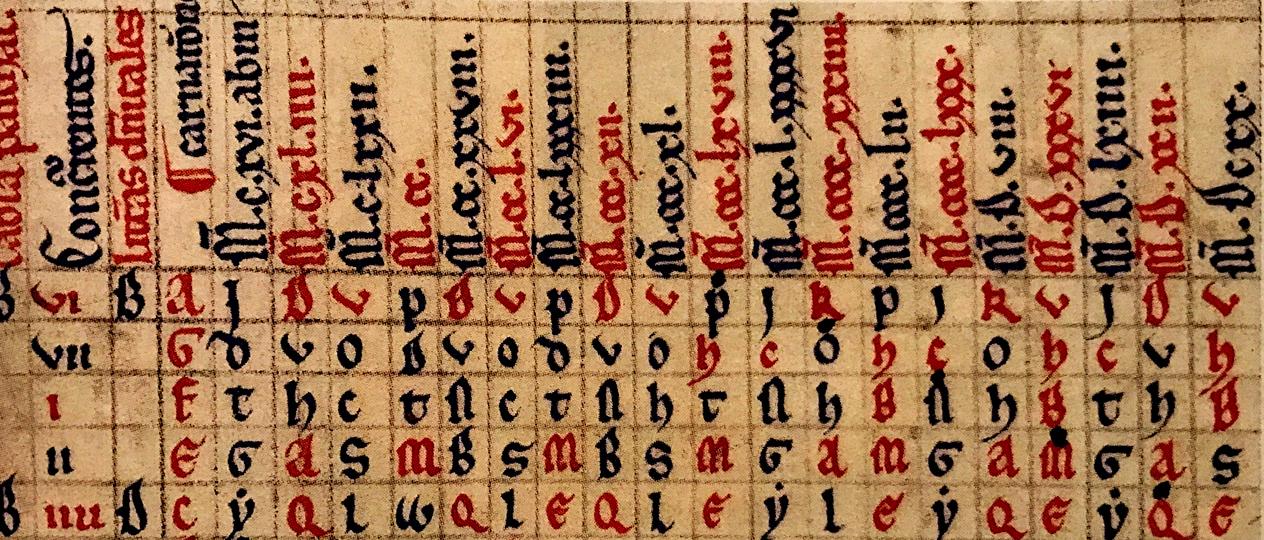 Concͬentes.
lit̄as dn̄icales
¶ carnatiōe
M̄.c.xvi. ab in
M.c.xl.iiii.
M̄.c.lxxii.
M̄.cc.
M̄.cc.xxviii.
M̄.cc.l.vi.
M̄.cc.lxxxiiii.
M̄.ccc.xii.
M̄.ccc.xl.
M̄.ccc.lxviii.
M̄.ccc.l.xxxxvi
M̄.cccc.xxiiii.
M̄.cccc.lii.
M̄.cccc.lxxx.
M̄.D.viii.
M̄.D.xxxvi
M̄.D.lxiiii.
M̄.D.xcii.
M̄.Dcxx.
vi B A J D v p D v p D v p J k p J k v J D v
vii G d v o d v o d v o h c o h c o h c v h
i F t h c t N c t N h t N h B N h B t h B
ii E G a S m B S m B S m G a m G a m G a S
iiii D C ẏ Q l w Q l E Q l E ẏ l E ẏ Q E ẏ Q E